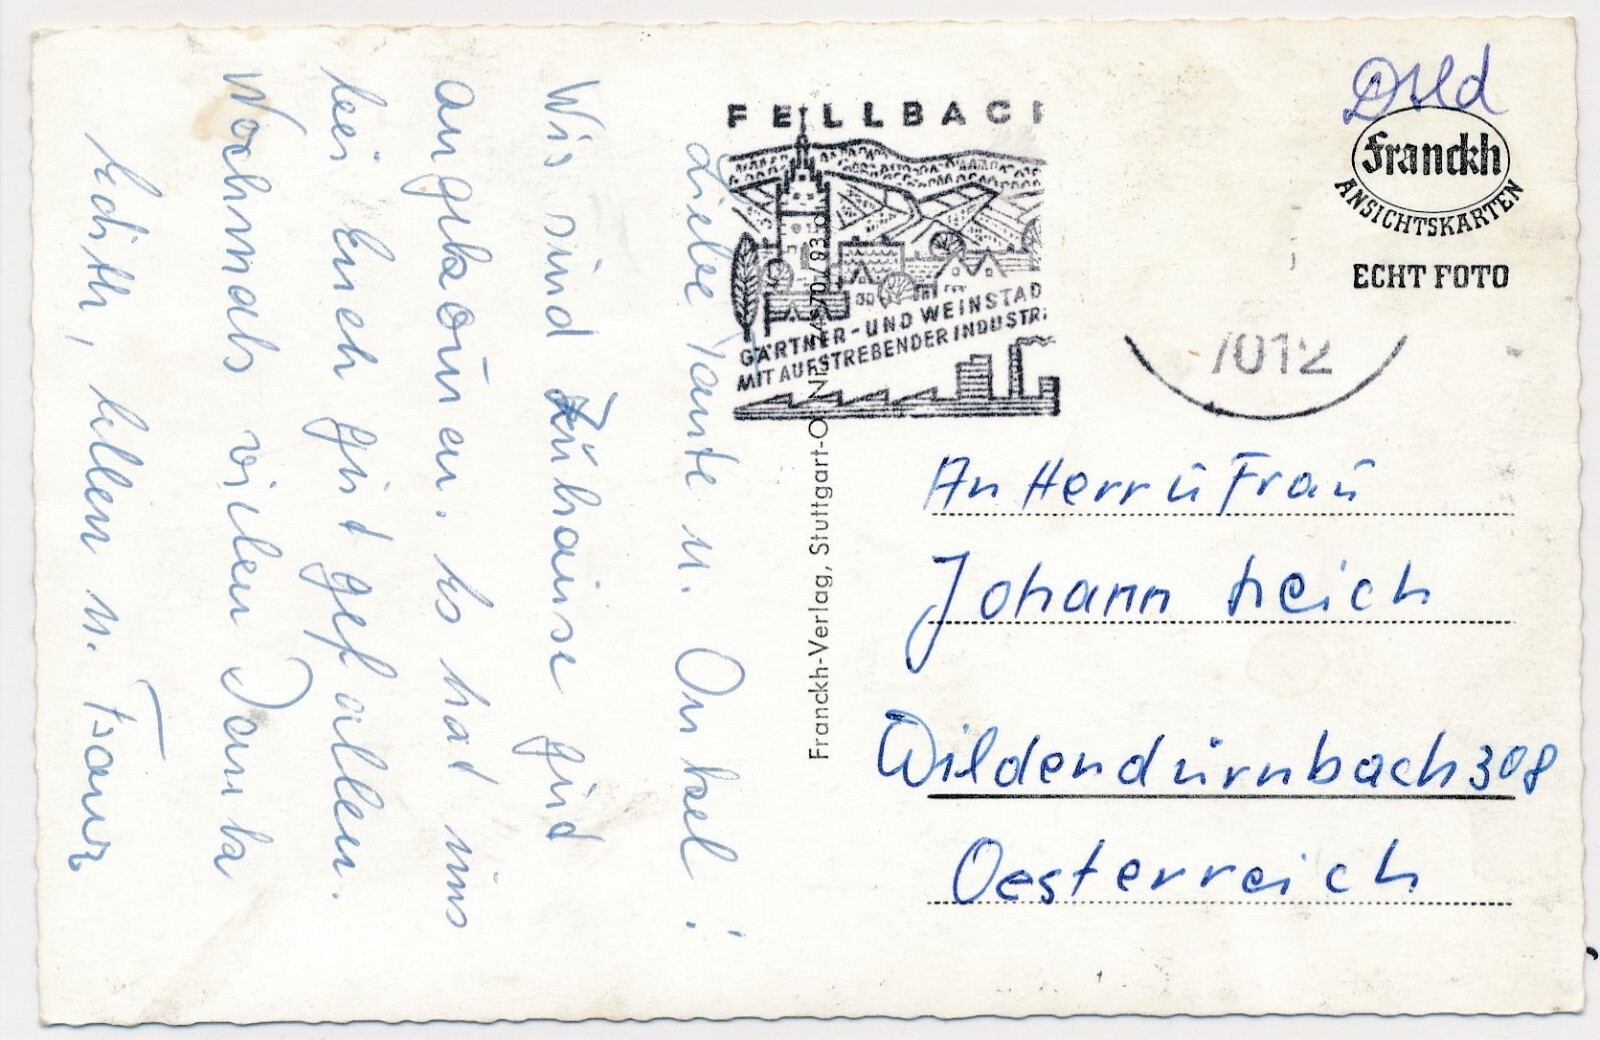 Liebe Tante u. Onkel!
Wir sind Zuhause gut
angekom̄en. Es hat uns
bei Euch gut gefallen.
Nochmals vielen Dank
Edith, Ellen u. Franz
FELLBACH
GÄRTNER-UND WEINSTAD
MIT AUFSTREBENDER INDUSTRI
Franckh-Verlag, Stuttgart-O
Dtld
Franckh
ANSICHTSKARTEN
ECHT FOTO
7012
An Herr ū Fraū
Johann Reich
Wildendürnbach 308
Oesterreich